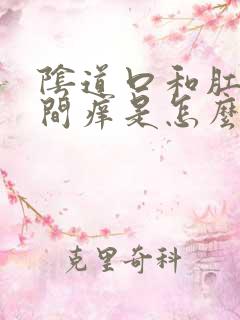 陰道口和肛
間痒是怎麼
克里奇科